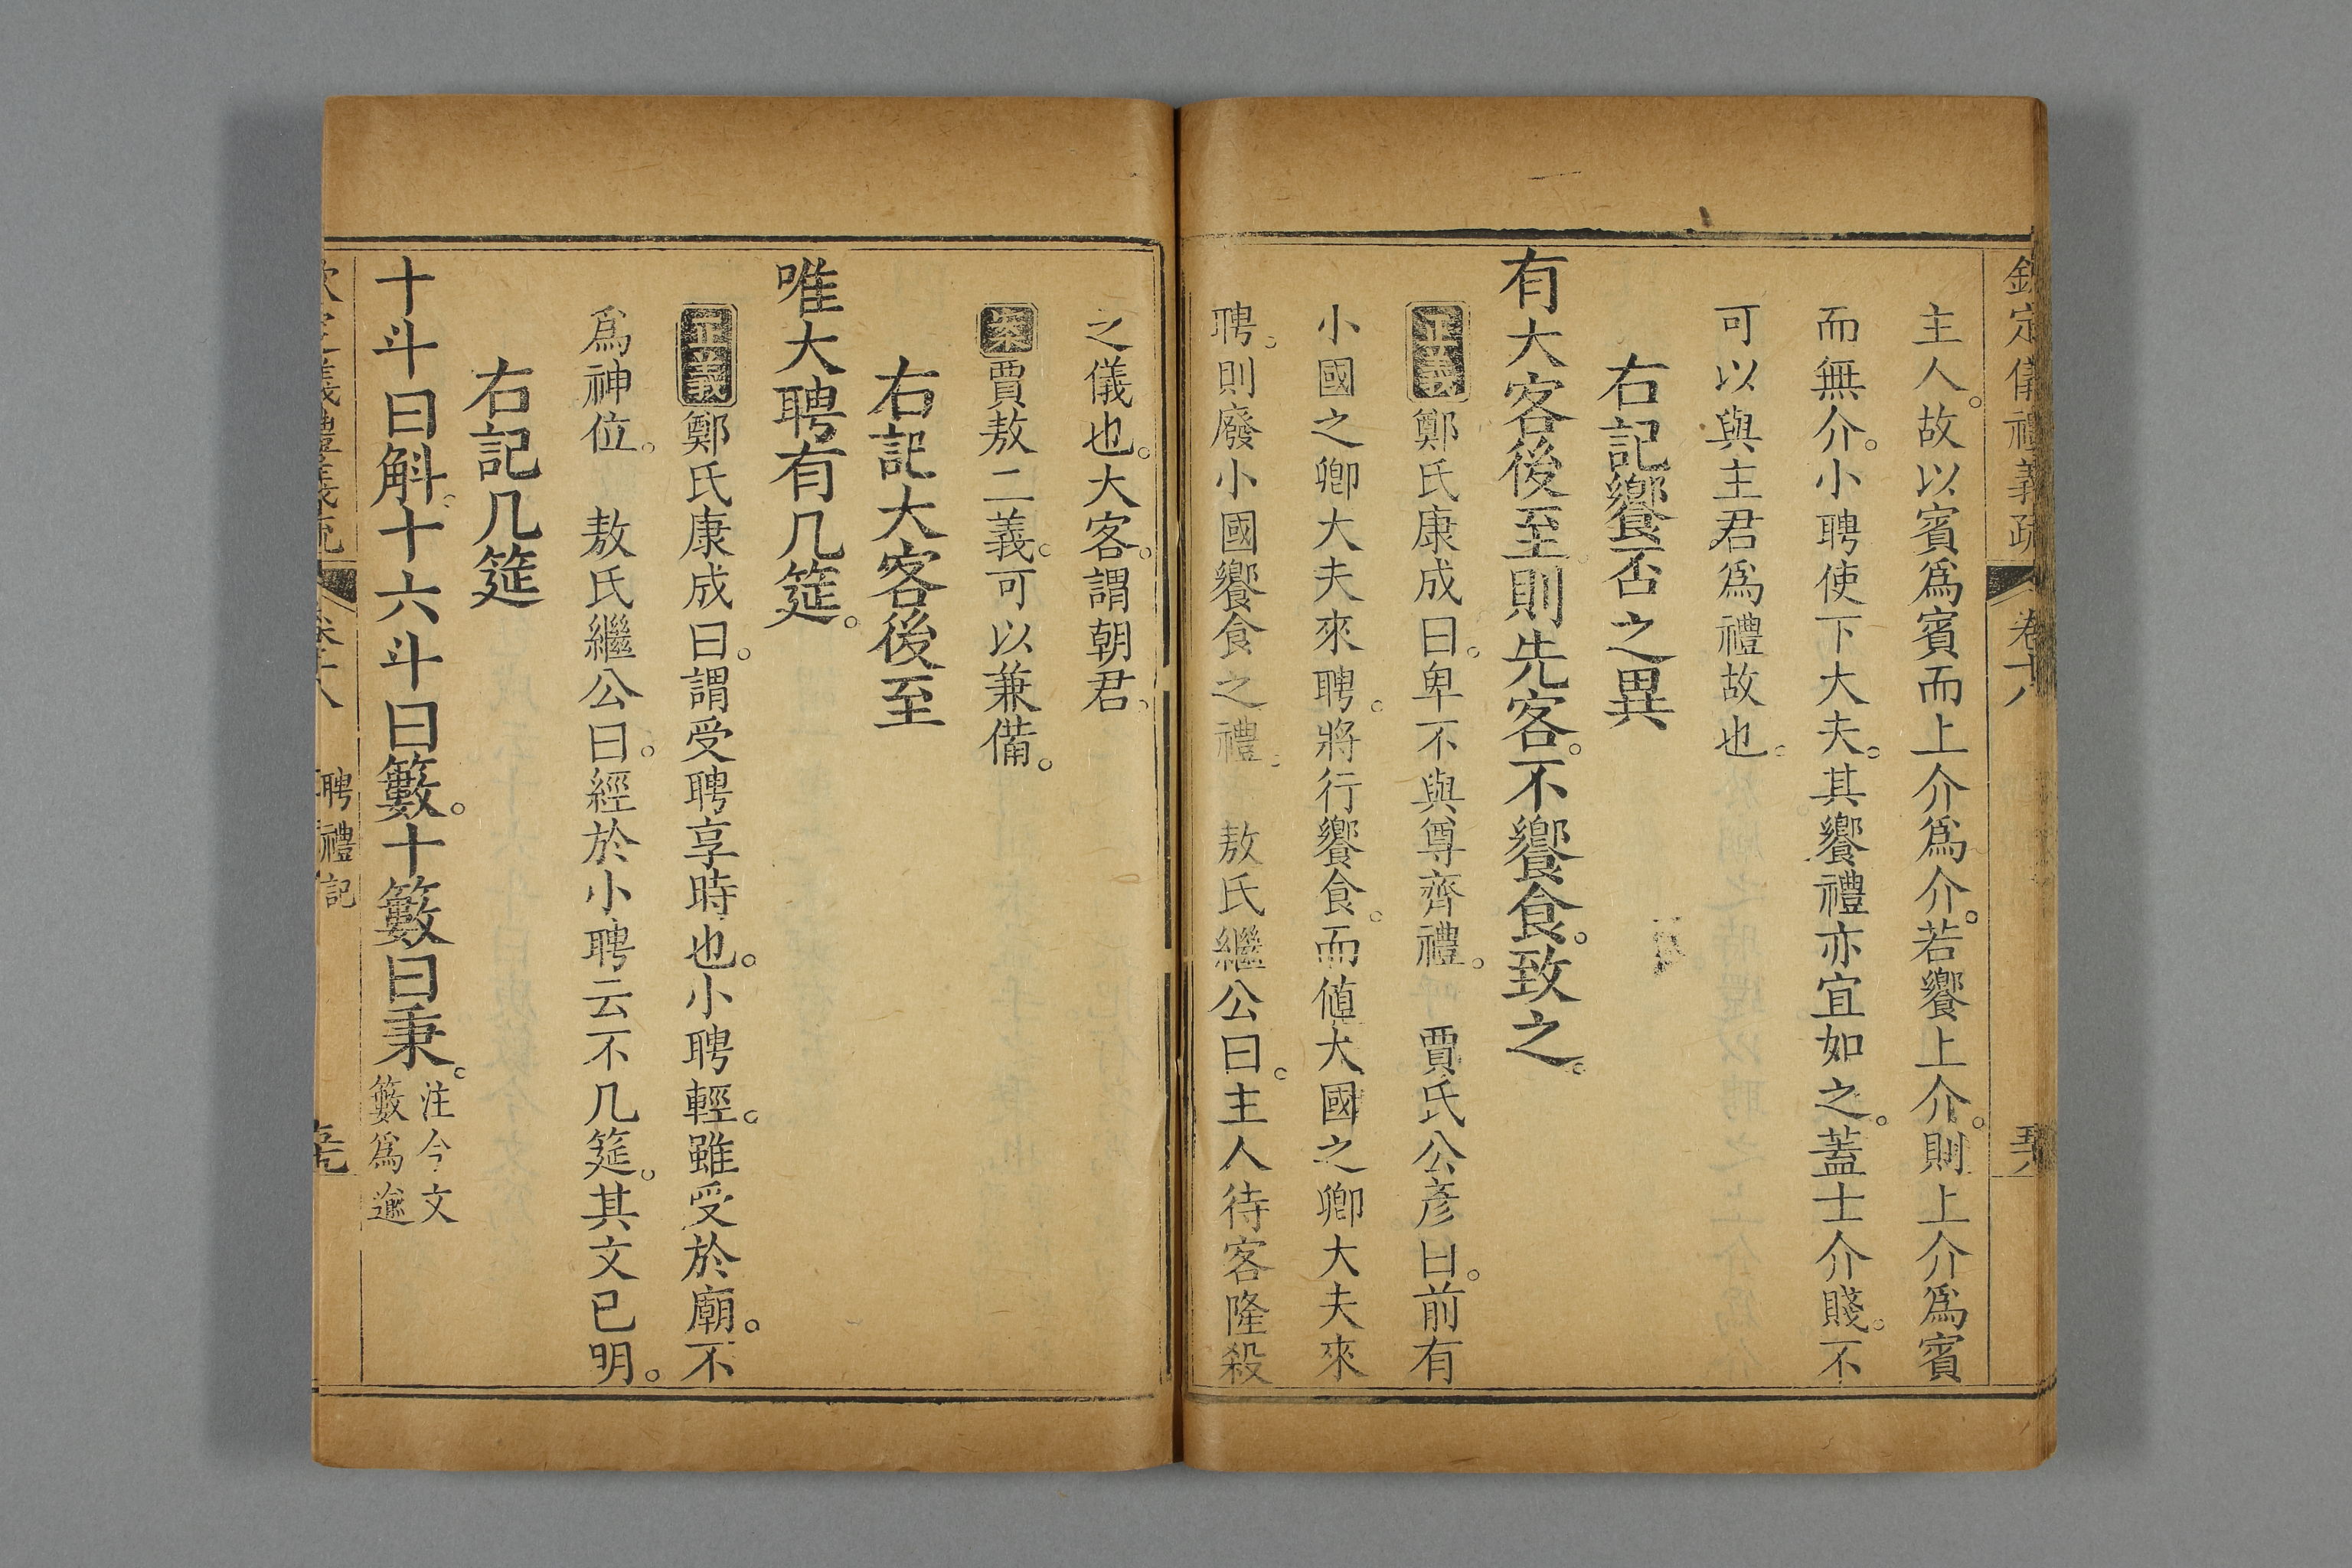 欽定儀禮義疏 卷十八
主人。故以賓爲賓而上介爲介。若饗上介。則上介爲賓
而無介。小聘使下大夫。其饗禮亦宜如之。蓋士介賤。不
可以與主君爲禮故也。
右記饗否之異
有大客後至則先客。不饗食。致之。
正義鄭氏康成曰。卑不與尊齊禮。 賈氏公彥曰。前有
小國之卿大夫來聘。將行饗食。而値大國之卿大夫來
聘。則廢小國饗食之禮。 敖氏繼公曰。主人待客隆殺
之儀也。大客。謂朝君。
案賈敖二義。可以兼備。
右記大客後至
唯大聘有几筵。
正義鄭氏康成曰。謂受聘享時也。小聘輕。雖受於廟。不
爲神位。 敖氏繼公曰。經於小聘云不几筵。其文已明。
右記几筵
十斗曰斛。十六斗曰籔。十籔曰秉。注今文籔爲逾
欽定儀禮義疏 卷十八 聘禮記